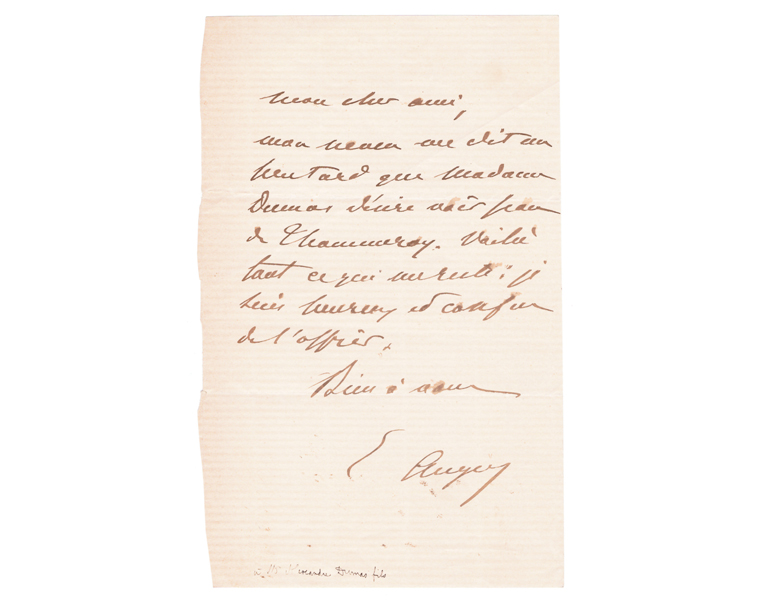 mon cher ami,
mon neveu me dit un
peu tard que Madame
Dumas désire voir Jean
de Thommeray. Voilà
tout ce qui me reste ; je
suis heureux et confus
de l'offrir.
Bien à vous
E Augier
à Mr Alexandre Dumas fils